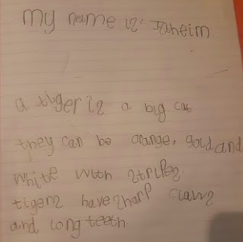 my name is Jaheim
a tiger is a big cat
they can be orange, gold and
white with stripes
tigers have sharp claws
and long teeth